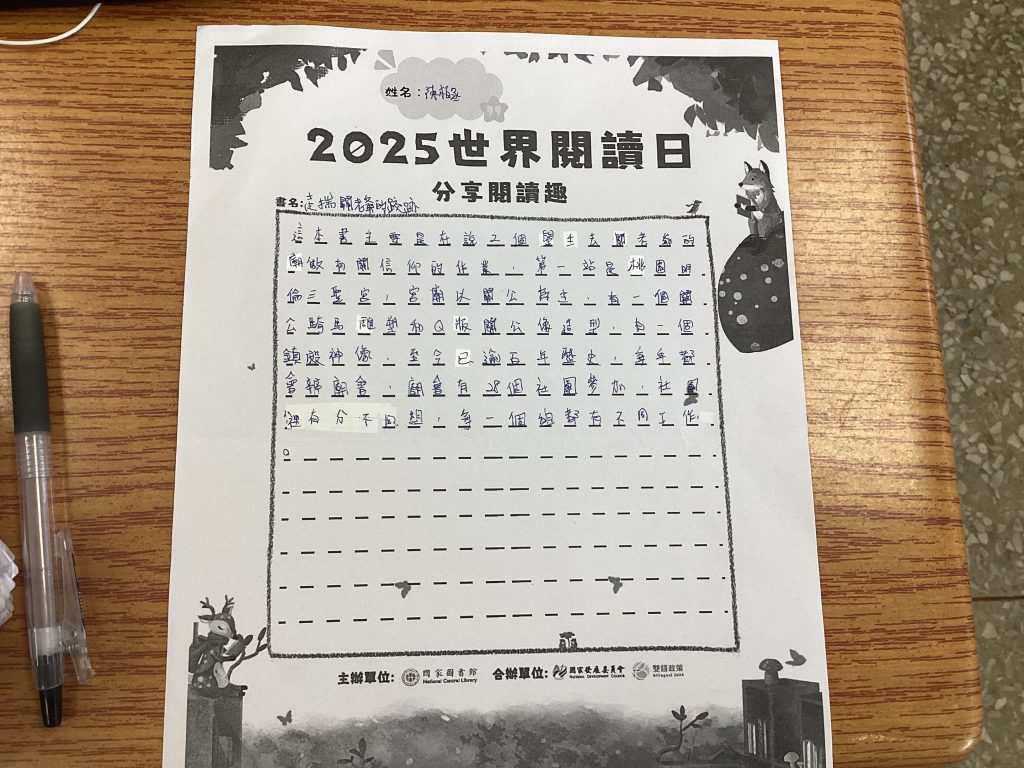 姓名：陳植丞
2025世界閱讀日
分享閱讀趣
書名：追揣關老爺的跤跡
這本書主要是在說2個學生去關老爺的
廟做有關信仰的作業，第一站是桃園明
倫三聖宮，宮廟以關公為主，有一個關
公騎馬雕塑和Q版關公像造型，有一個
鎮殿神像，至今已逾百年歷史，每年都
會辦廟會，廟會有28個社團參加，社團
裡有分不同組，每一個組都有不同工作
。
主辦單位: 國家圖書館 合辦單位: 國家發展委員會 雙語政策
National Central Library NATIONAL DEVELOPMENT COUNCIL Bilingual 2030